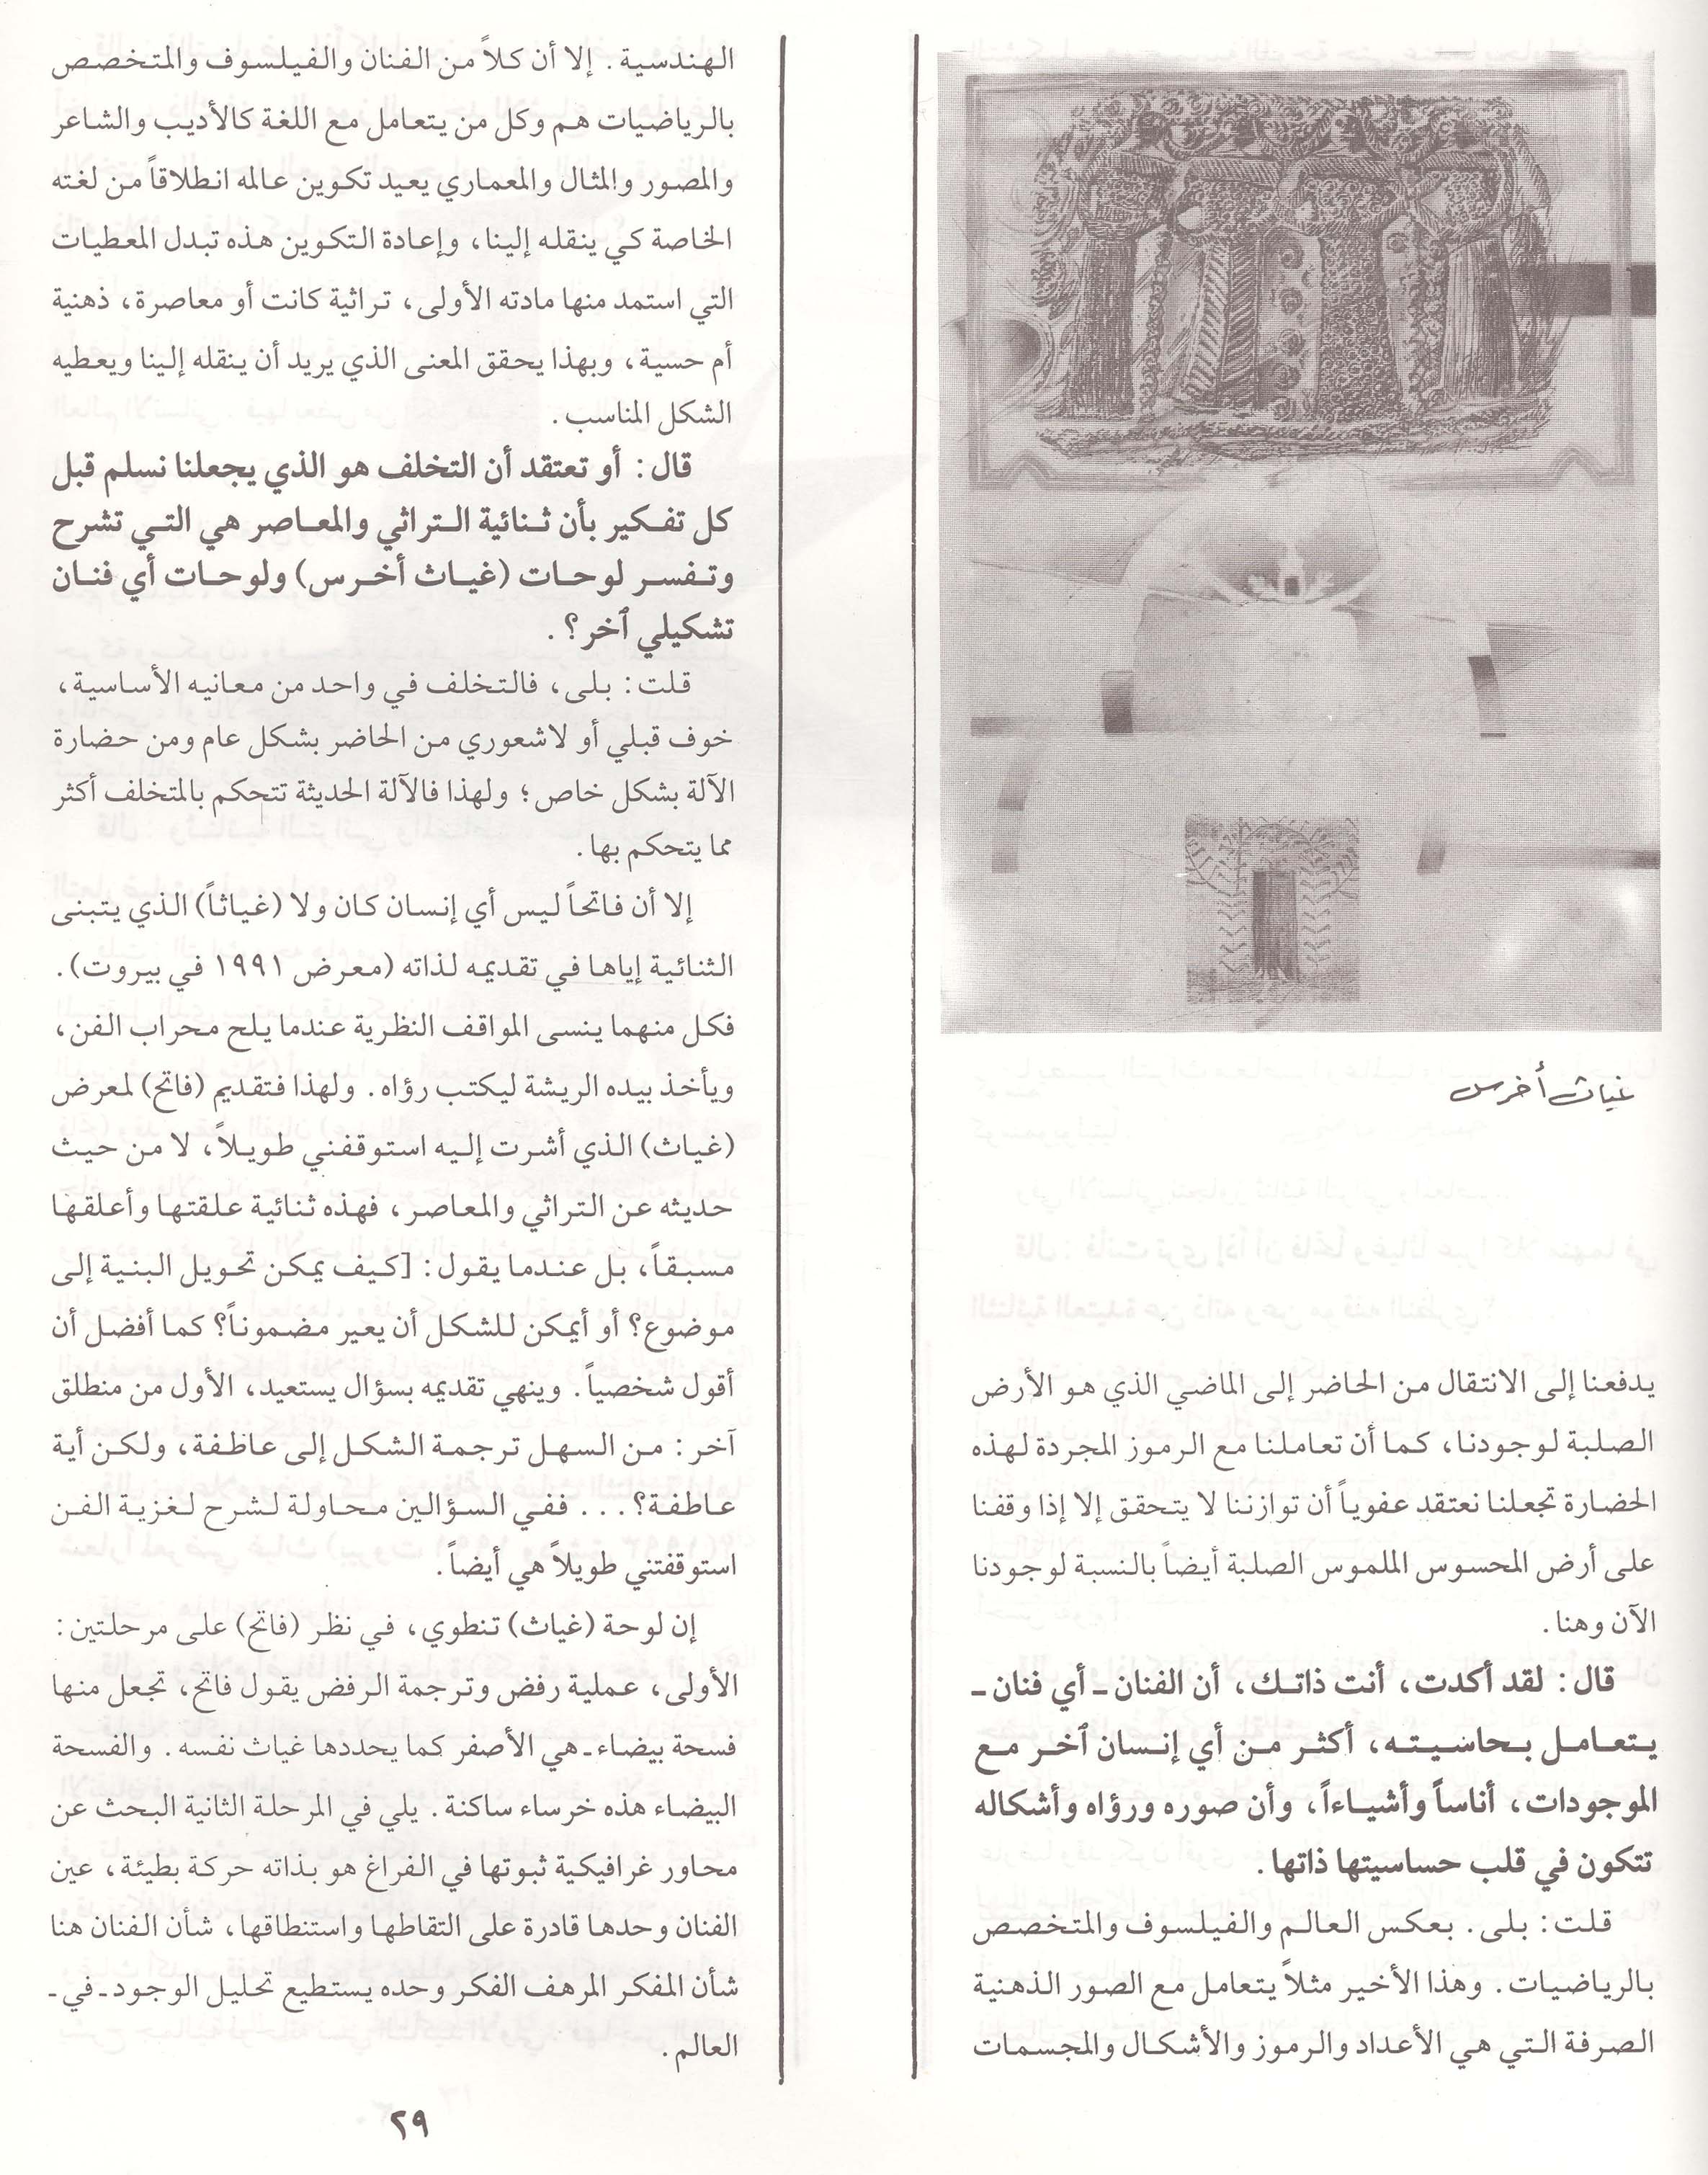 غياث أخرس
يدفعنا إلى الانتقال من الحاضر إلى الماضي الذي هو الأرض
الصلبة لوجودنا، كما أن تعاملنا مع الرموز المجردة لهذه
الحضارة تجعلنا نعتقد عفوياً أن توازننا لا يتحقق إلا إذا وقفنا
على أرض المحسوس الملموس الصلبة أيضاً بالنسبة لوجودنا
الآن وهنا.
قال: لقد أكدت، أنت ذاتك، أن الفنان ـ أي فنان ـ
يتعامل بحاسيته، أكثر من أي إنسان آخر مع
الموجودات، أناساً وأشياءاً، وأن صوره ورؤاه وأشكاله
تتكون في قلب حساسيتها ذاتها.
قلت: بلى. بعكس العالم والفيلسوف والمتخصص
بالرياضيات. وهذا الأخير مثلاً يتعامل مع الصور الذهنية
الصرفة التي هي الأعداد والرموز والأشكال والمجسمات
الهندسية. إلا أن كلاً من الفنان والفيلسوف والمتخصص
بالرياضيات هم وكل من يتعامل مع اللغة كالأديب والشاعر
والمصور والمثال والمعماري يعيد تكوين عالمه انطلاقاً من لغته
الخاصة كي ينقله إلينا، وإعادة التكوين هذه تبدل المعطيات
التي استمد منها مادته الأولى، تراثية كانت أو معاصرة، ذهنية
أم حسية، وبهذا يحقق المعنى الذي يريد أن ينقله إلينا ويعطيه
الشكل المناسب.
قال: أو تعتقد أن التخلف هو الذي يجعلنا نسلم قبل
كل تفكير بأن ثنائية التراثي والمعاصر هي التي تشرح
وتفسر لوحات (غياث أخرس) ولوحات أي فنان
تشكيلي آخر؟.
قلت: بلى، فالتخلف في واحد من معانيه الأساسية،
خوف قبلي أو لاشعوري من الحاضر بشكل عام ومن حضارة
الآلة بشكل خاص؛ ولهذا فالآلة الحديثة تتحكم بالمتخلف أكثر
مما يتحكم بها.
إلا أن فاتحاً ليس أي إنسان كان ولا (غياثاً) الذي يتبنى
الثنائية إياها في تقديمه لذاته (معرض ١٩٩١ في بيروت).
فكل منهما ينسى المواقف النظرية عندما يلح محراب الفن،
ويأخذ بيده الريشة ليكتب رؤاه. ولهذا فتقديم (فاتح) لمعرض
(غياث) الذي أشرت إليه استوقفني طويلاً، لا من حيث
حديثه عن التراثي والمعاصر، فهذه ثنائية علقتها وأعلقها
مسبقاً، بل عندما يقول: [كيف يمكن تحويل البنية إلى
موضوع؟ أو أيمكن للشكل أن يعير مضموناً؟ كما أفضل أن
أقول شخصياً. وينهي تقديمه بسؤال يستعيد، الأول من منطلق
آخر: من السهل ترجمة الشكل إلى عاطفة، ولكن أية
عاطفة؟... ففي السؤالين محاولة لشرح لغزية الفن
استوقفتني طويلاً هي أيضاً.
إن لوحة (غياث) تنطوي، في نظر (فاتح) على مرحلتين:
الأولى، عملية رفض وترجمة الرفض يقول فاتح، تجعل منها
فسحة بيضاء ـ هي الأصفر كما يحددها غياث نفسه. والفسحة
البيضاء هذه خرساء ساكنة. يلي في المرحلة الثانية البحث عن
محاور غرافيكية ثبوتها في الفراغ هو بذاته حركة بطيئة، عين
الفنان وحدها قادرة على التقاطها واستنطاقها، شأن الفنان هنا
شأن المفكر المرهف الفكر وحده يستطيع تحليل الوجود ـ في ـ
العالم.
٢٩